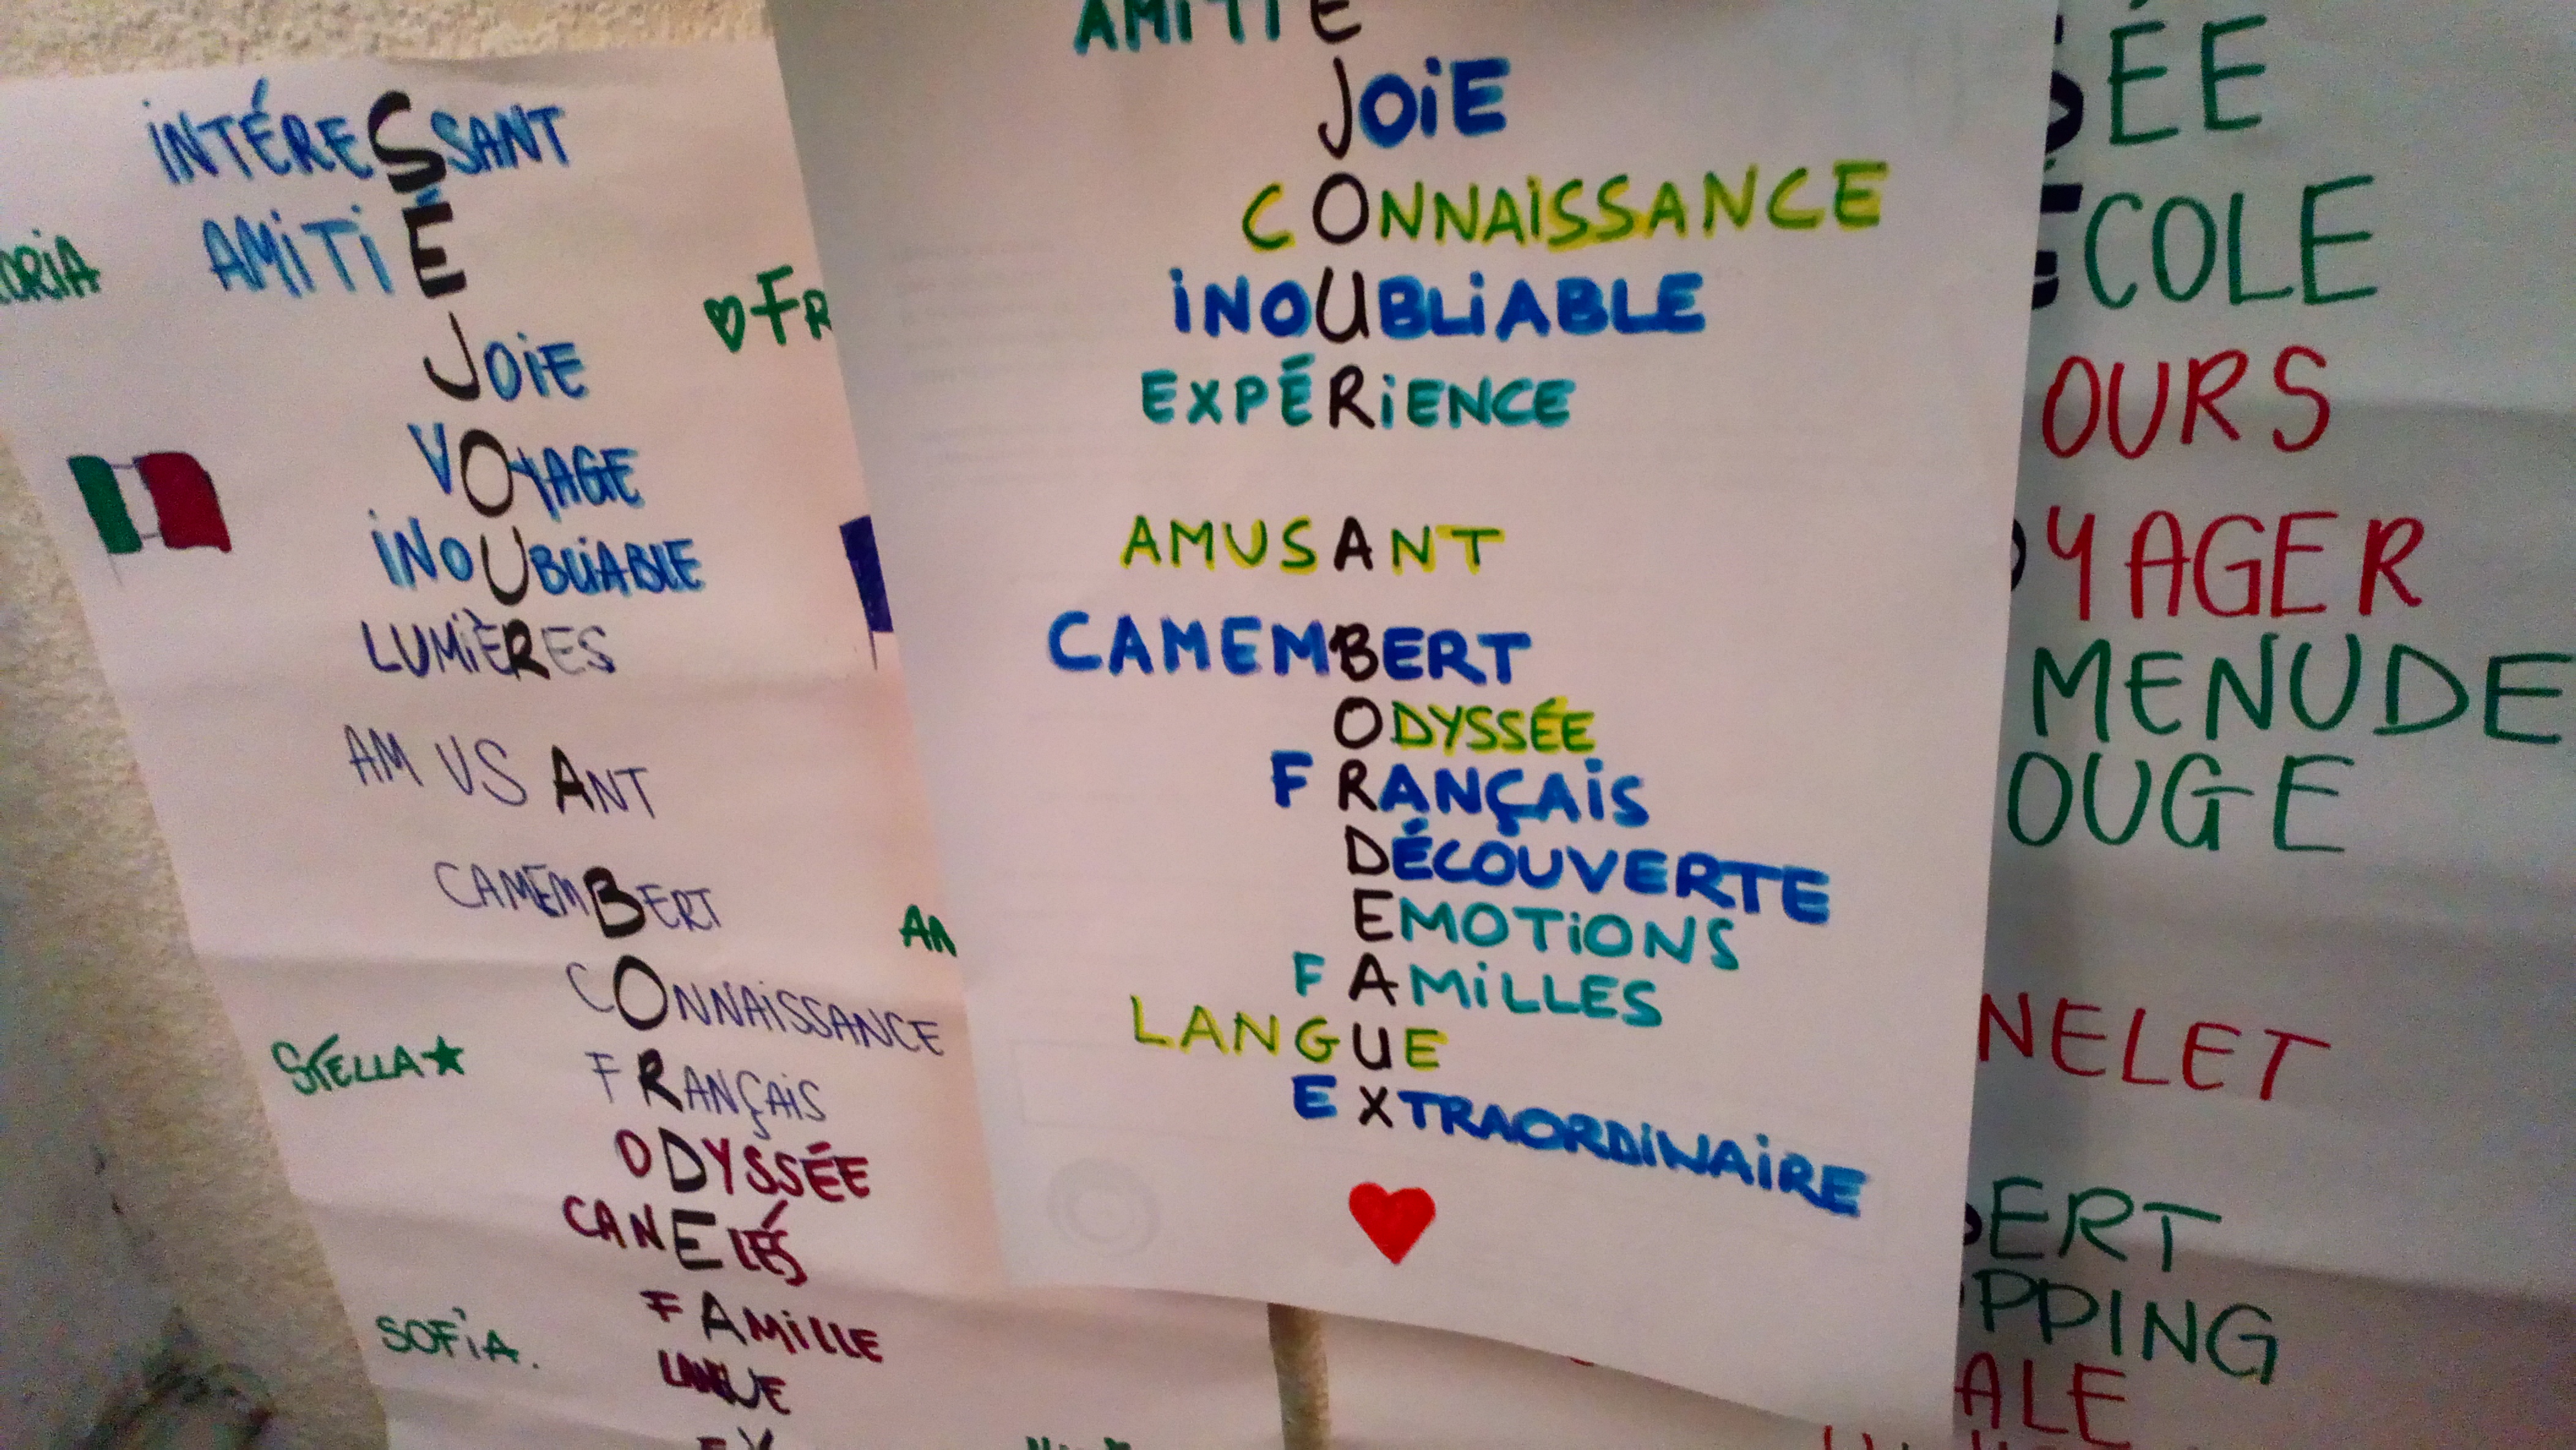 INTÉRESSANT
AMITIÉ
JOIE
VOYAGE
INOUBLIABLE
LUMIÈRES
AMUSANT
CAMEMBERT
CONNAISSANCE
FRANÇAIS
ODYSSÉE
CANELÉS
FAMILLE
LANGUE
STELLA
SOFIA.
AMITIE
JOIE
CONNAISSANCE
INOUBLIABLE
EXPÉRIENCE
AMUSANT
CAMEMBERT
ODYSSÉE
FRANÇAIS
DÉCOUVERTE
EMOTIONS
FAMILLES
LANGUE
EXTRAORDINAIRE
SÉE
ÉCOLE
OURS
OYAGER
MENUDE
OUGE
NELET
BERT
OPPING
ALE